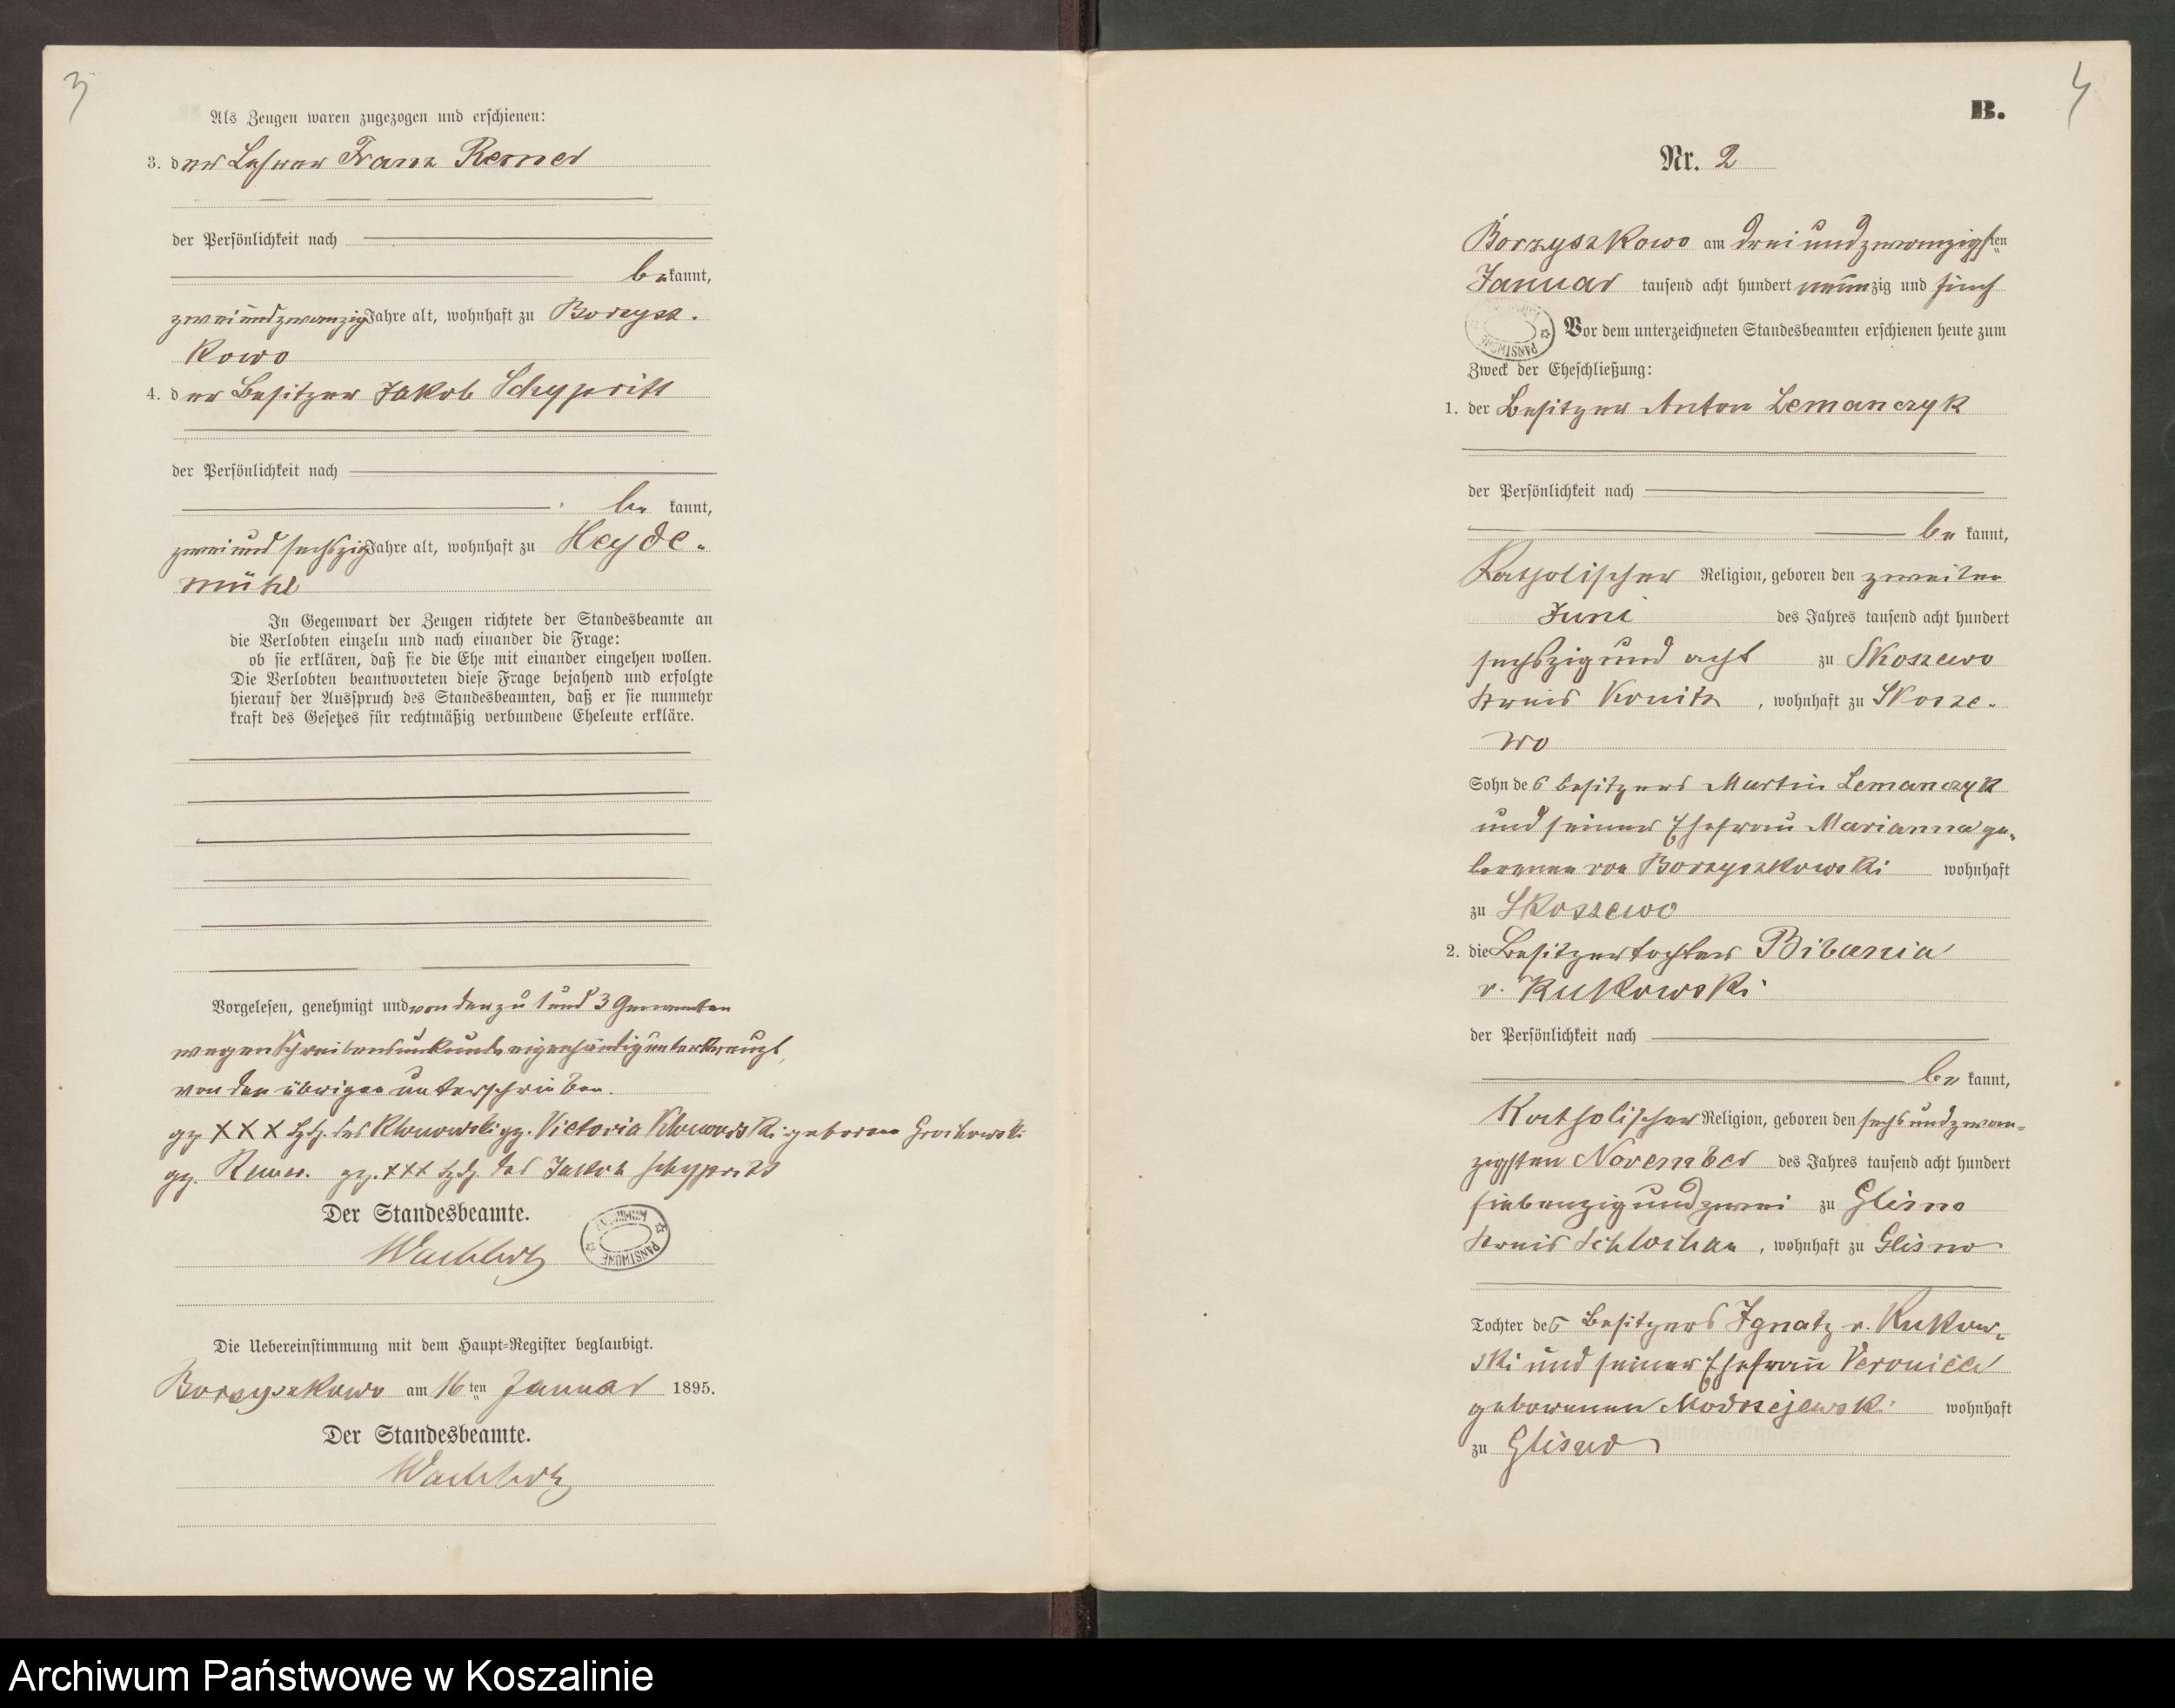 3
Als Zeugen waren zugezogen und erschienen:
3. der Lehrer Franz Remer
der Persönlichkeit nach
bekannt,
zweiundzwanzig Jahre alt, wohnhaft zu Borzysz-
kowo
4. der Besitzer Jakob Schypritt
der Persönlichkeit nach
be kannt,
zweiundsechszig Jahre alt, wohnhaft zu Heyde-
mühl
In Gegenwart der Zeugen richtete der Standesbeamte an
die Verlobten einzeln und nach einander die Frage:
ob sie erklären, daß sie die Ehe mit einander eingehen wollen.
Die Verlobten beantworteten diese Frage bejahend und erfolgte
hierauf der Ausspruch des Standesbeamten, daß er sie nunmehr
kraft des Gesetzes für rechtmäßig verbundene Eheleute erkläre.
Vorgelesen, genehmigt und von den zu 1 und 3 Genannten
wegen Schreibensunkunde eigenhändig unterkreuzt,
von den übrigen unterschrieben.
gz XXX Hdz. des gz. Victoria geborene Grochowski
gz. Remer. gz. XXX Hdz. des Jakob Schypritt
Der Standesbeamte.
Wachholz
ARCHIWUM PAŃSTWOWE
Die Uebereinstimmung mit dem Haupt-Register beglaubigt.
Borzyszkowo am 16ten Januar 1895.
Der Standesbeamte.
Wachholz
4
B.
Nr. 2
Borzyszkowo am dreiundzwanzigsten
Januar tausend acht hundert neunzig und fünf
PAŃSTWOWE
Vor dem unterzeichneten Standesbeamten erschienen heute zum
Zweck der Eheschließung:
1. der Besitzer Anton Lemanczyk
der Persönlichkeit nach
be kannt,
Katholischer Religion, geboren den zweiten
Juni des Jahres tausend acht hundert
sechszig und acht zu Skoszewo
Kreis Konitz, wohnhaft zu Skosze-
wo
Sohn des Besitzers Martin Lemanczyk
und seiner Ehefrau Marianna ge-
borenen von Borzyszkowski wohnhaft
zu Skoszewo
2. die Besitzertochter Bibania
v. Kukowski
der Persönlichkeit nach
be kannt,
Katholischer Religion, geboren den sechsundzwan-
zigsten November des Jahres tausend acht hundert
siebenzig und zwei zu Glisno
Kreis Schlochau, wohnhaft zu Glisno
Tochter des Besitzers Ignatz v. Kukow-
ski und seiner Ehefrau Veronica
geborenen Modrzejewski wohnhaft
zu Glisno
Archiwum Państwowe w Koszalinie